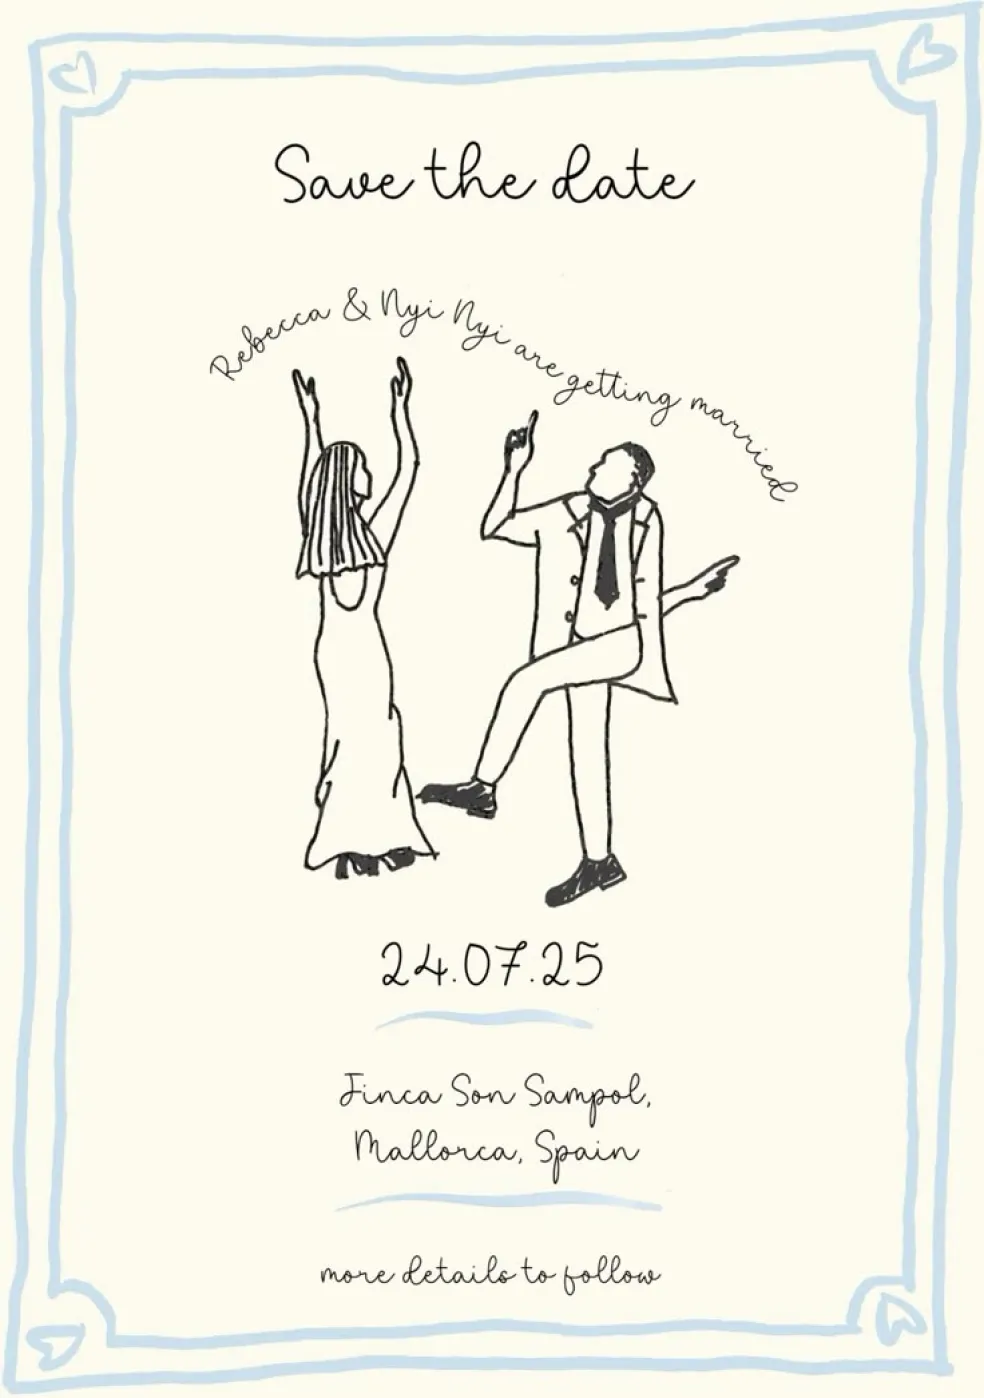 Save the date
Rebecca & Nyi Nyi are getting married
24.07.25
Finca Son Sampol,
Mallorca, Spain
more details to follow